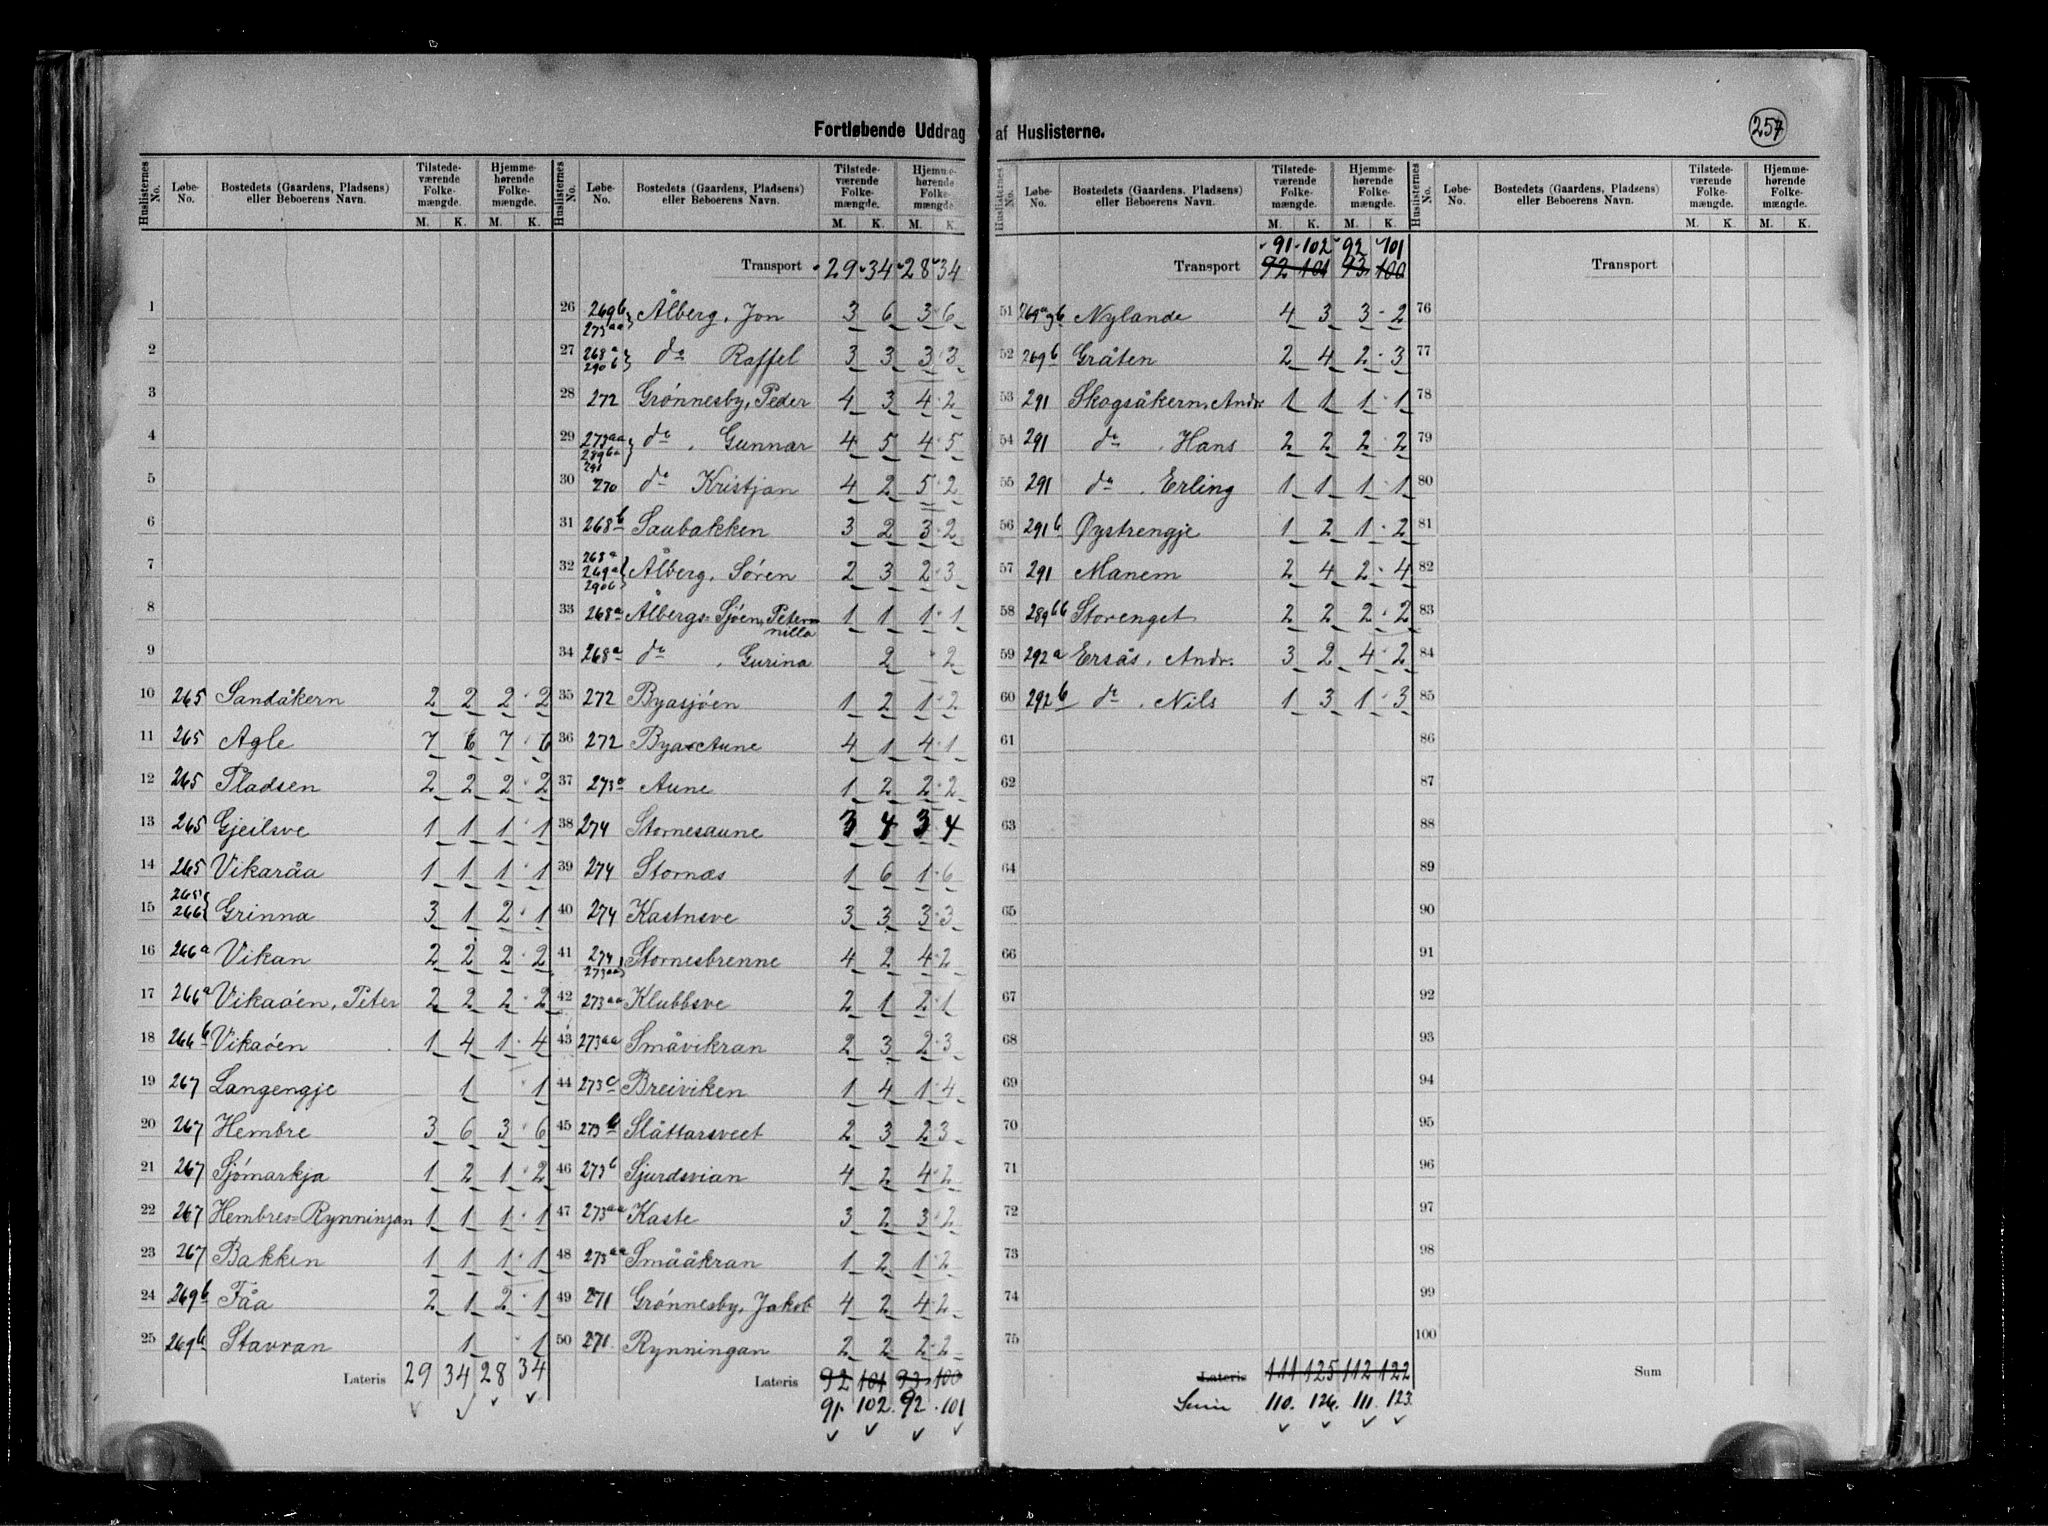 Fortløbende Uddrag af Huslisterne.
257
Huslisternes No. | Løbe-No. | Bostedets (Gaardens, Pladsens) eller Beboerens Navn. | Tilstedeværende Folkemængde. M. K. | Hjemmehørende Folkemængde. M. K.
1
2
3
4
5
6
7
8
9
10 265 Sandåkern 2 2 2 2
11 265 Agle 7 6 7 6
12 265 Pladsen 2 2 2 2
13 265 Gjeilsve 1 1 1 1
14 265 Vikaråa 1 1 1 1
15 265 266 Grinna 3 1 2 1
16 266a Vikan 2 2 2 2
17 266a Vikaøen, Peter 2 2 2 2
18 266b Vikaøen 1 4 1 4
19 267 Langengje 1 1
20 267 Hembre 3 6 3 6
21 267 Sjömarkja 1 2 1 2
22 267 Hembres-Rynninjan 1 1 1 1
23 267 Bakken 1 1 1 1
24 269b Fåa 2 1 2 1
25 269b Stavran 1 1
Lateris 29 34 28 34
Huslisternes No. | Løbe-No. | Bostedets (Gaardens, Pladsens) eller Beboerens Navn. | Tilstedeværende Folkemængde. M. K. | Hjemmehørende Folkemængde. M. K.
Transport 29 34 28 34
26 269b 273aa Ålberg, Jon 3 6 3 6
27 268a 290b do Raffel 3 3 3 3
28 272 Grønnesby, Peder 4 3 4 2
29 273aa 289ba 291 do, Gunnar 4 5 4 5
30 270 do Kristjan 4 2 5 2
31 268b Saubakken 3 2 3 2
32 268a 269a 290b Ålberg, Søren 2 3 2 3
33 268a Ålbergs-Sjøen, Peternilla 1 1 1 1
34 268a do, Gurina 2 2
35 272 Byasjøen 1 2 1 2
36 272 Bya-Aune 4 1 4 1
37 273a Aune 1 2 2 2
38 274 Stornesaune 3 4 3 4
39 274 Stornæs 1 6 1 6
40 274 Kastnsve 3 3 3 3
41 274 273aa Stornesbrenne 4 2 4 2
42 273aa Klubbsve 2 1 2 1
43 273aa Småvikran 2 3 2 3
44 273c Breiviken 1 4 1 4
45 273b Slåttarsveet 2 3 2 3
46 273b Sjurdsvian 4 2 4 2
47 273aa Kaste 3 2 3 2
48 273aa Smååkran 1 2 1 2
49 271 Grønnesby, Jakob 4 2 4 2
50 271 Rynningan 2 2 2 2
Lateris 92 101 93 100
91 102 92 101
Huslisternes No. | Løbe-No. | Bostedets (Gaardens, Pladsens) eller Beboerens Navn. | Tilstedeværende Folkemængde. M. K. | Hjemmehørende Folkemængde. M. K.
91 102 92 101
Transport 92 101 93 100
51 269a og b Nylande 4 3 3 2
52 269b Gråten 2 4 2 3
53 291 Skogsåkern, Andr. 1 1 1 1
54 291 do, Hans 2 2 2 2
55 291 do, Erling 1 1 1 1
56 291b Øystrengje 1 2 1 2
57 291 Manem 2 4 2 4
58 289bb Storenget 2 2 2 2
59 292a Ersås, Andr. 3 2 4 2
60 292b do, Nils 1 3 1 3
61
62
63
64
65
66
67
68
69
70
71
72
73
74
75
Lateris 111 125 112 122
Sum 110. 126. 111. 123.
Huslisternes No. | Løbe-No. | Bostedets (Gaardens, Pladsens) eller Beboerens Navn. | Tilstedeværende Folkemængde. M. K. | Hjemmehørende Folkemængde. M. K.
Transport
76
77
78
79
80
81
82
83
84
85
86
87
88
89
90
91
92
93
94
95
96
97
98
99
100
Sum